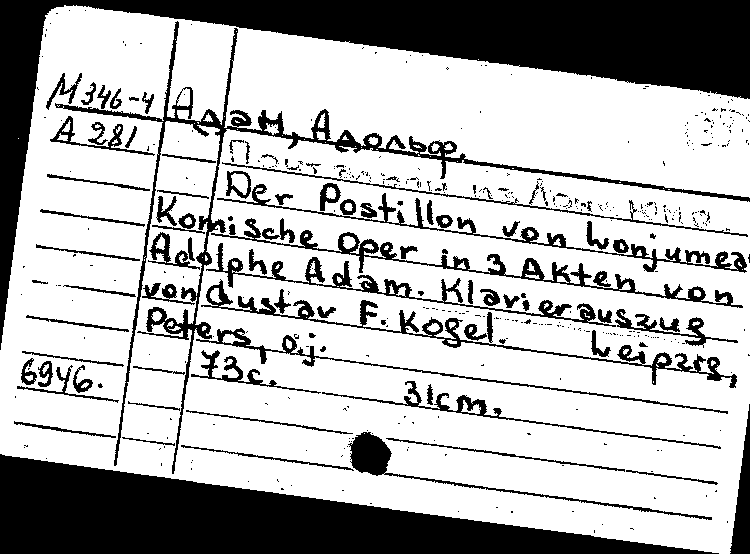 М346-4
А 281
Адам, Адольф.
из
Der Postillon von Lonjumeau
Komische Oper in 3 Akten von
Adolphe Adam. Klavierauszug
von Gustav F. Kogel. Leipzig,
Peters, o.j.
6946.
73с. 31cm.